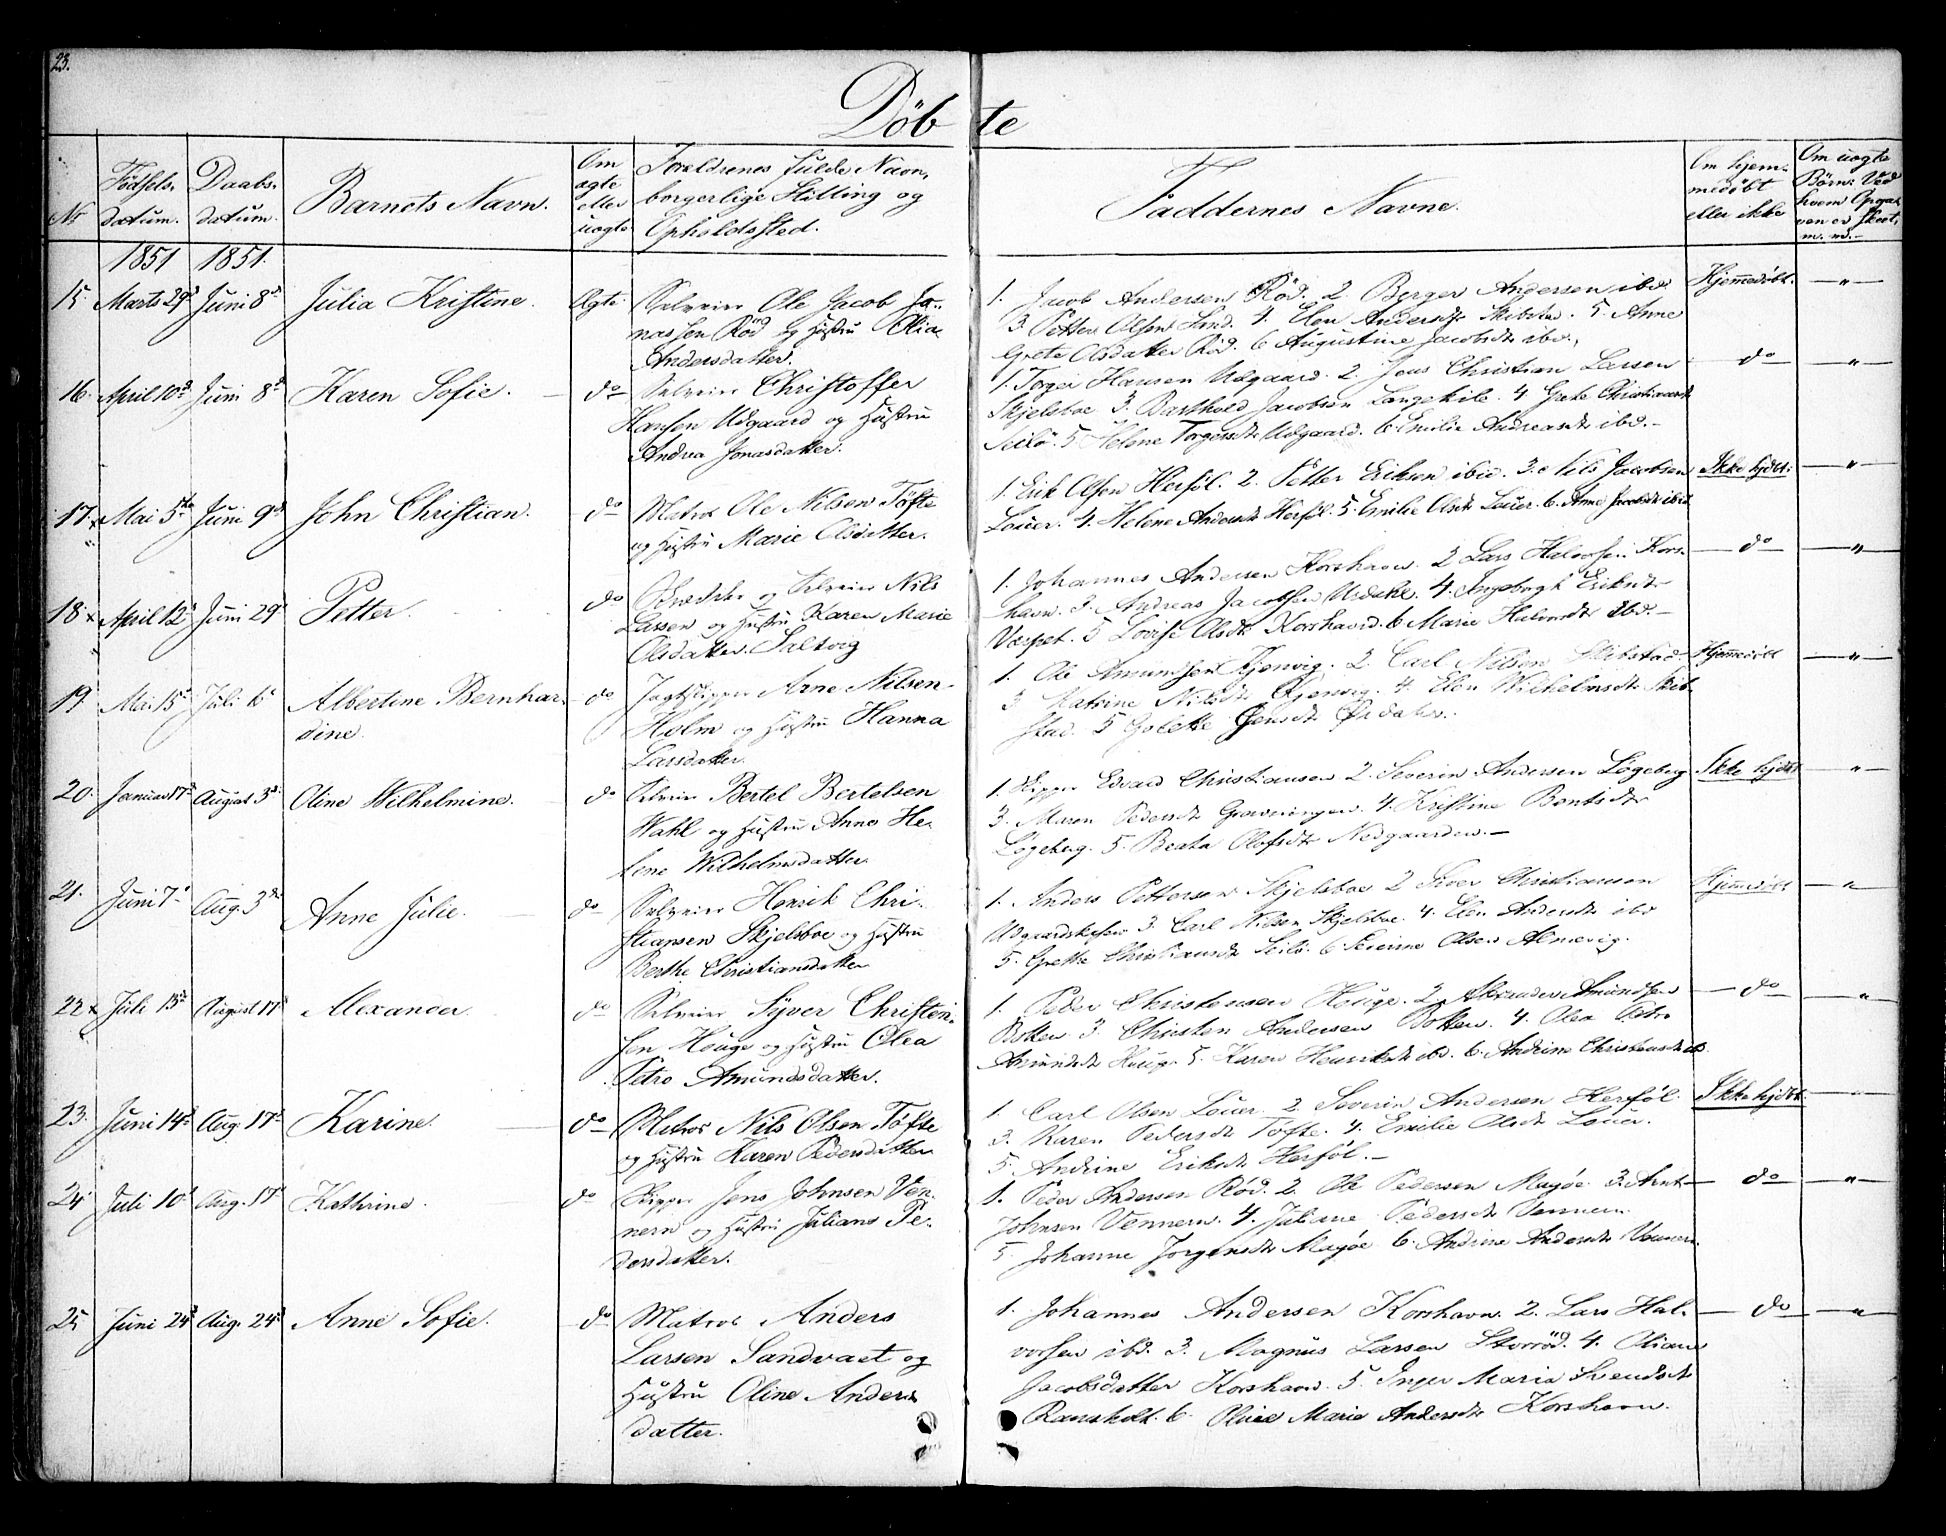 23.
Döbte
No
Födsels-
datum.
Daabs-
datum.
Barnets Navn.
Om
ægte
eller
uægte
Foreldrenes fulde Navn,
borgerlige Stilling og
Opholdssted.
Faddernes Navne.
Om hjem-
medöbt
eller ikke
Om uægte
Börn: Ved
hvem Opga-
ven er skeet,
m. m.
1851 1851.
15. Marts 29d Juni 8d Julia Kristine. Ægte. Selveier Ole Jacob Jo-
nassen Röd og Hustru Olia
Andersdatter.
1. Jacob Andersen Röd. 2. Berger Andersen ibd.
3. Petter Olsen Lind. 4. Elen Andersdtr Skibstad. 5. Anne
Grete Olsdatter Röd. 6 Augustine Jacobsdtr ibd.
Hjemmedöbt. "
16. April 10d Juni 8d Karen Sofie. do Selveier Christoffer
Hansen Udgaard og Hustru
Andrea Jonasdatter.
1. Torger Hansen Udgaard. 2. Jens Christian Larsen
Skjelsboe 3. Barthold Jacobsen Langekile. 4 Grete Christiansdtr
Seilö. 5 Helene Torgersdtr Udgaard. 6 Emilie Andreasdtr ibd.
do "
17. x Mai 5te Juni 9d John Christian. do Matros Ole Nilsen Töfte
og Hustru Marie Olsdatter.
1. Erik Olsen Herföl. 2. Petter Eriksen ibid. 3. Nils Jacobsen
Löuer. 4. Helene Andersdtr Herföl. 5. Emilie Olsdtr Löuer. 6. Anne Jacobsdtr ibid
Ikke hjdbt. "
18. x April 12d Juni 29d Petter. do Skrædder og Selveier Nils
Larsen og Hustru Karen Marie
Olsdatter. Saltvig
1. Johannes Andersen Korshavn. 2 Lars Halvorsen Kors-
havn. 3. Andreas Jacobsen Urdahl. 4. Ingeborgh Eriksdtr
Værpet. 5 Lovise Olsdtr Korshavn. 6 Marie Halvorsdtr ibd.
do "
19. Mai 15d Juli 6d Albertine Bernhar-
dine. do Jagtskipper Arne Nilsen
Holm og Hustru Hanna
Larsdatter.
1. Ole Amundsen Kjenvig. 2. Carl Nilsen Skibstad.
3 Katrine Nilsdtr Kjenvig. 4. Elen Wilhelmsdtr Skib-
stad. 5 Golette Jensdtr
Hjemmedöbt "
20. Januar 17d August 3d. Oline Wilhelmine. do Selveier Bertel Bertelsen
Wahl og Hustru Anne He-
lene Wilhelmsdatter.
1. Skipper Edvard Christiansen 2. Severin Andersen Lögeberg
3. Maren Pedersdtr Graveningen. 4. Kristine Berntsdtr
Lögeberg. 5. Beata Olofsdtr Nedgaarden.
Ikke hjdbt "
21. Juni 7d Aug. 3d Anne Julie. do Selveier Henrik Chri-
stiansen Skjelsboe og Hustru
Berthe Christiansdatter
1. Anders Pettersen Skjelsboe 2 Siver Christiansen
Udgaardskasen 3. Carl Nilsen Skjelsboe. 4. Elen Andersdtr ibd
5. Grette Christiansdtr Seilö. 6 Severine Olsen
Hjemmedöbt "
22 x Juli 15d August 17d Alexander. do Selveier Syver Christen-
sen Houge og Hustru Olea
Petro Amundsdatter.
1. Peder Christensen Houge. 2. Alexander Amundsen
Botten 3. Christen Andersen Botten. 4. Olea Petro
Amundsdtr Houge 5. Karen Henriksdtr ibd. 6. Andrine Christensdtr ib.
do "
23. Juni 14d Aug. 17d Karine. do Matros Nils Olsen Töfte
og Hustru Karen Pedersdatter
1. Carl Olsen Löuer. 2. Severin Andersen Herföl.
3. Karen Pedersdtr Töfte. 4. Emilie Olsdt Löuer.
5. Andrine Eriksdt Herföl.
Ikke hjdbt. "
24. Juli 10d Aug. 17d Kathrine. do Skipper Jens Johnsen Ven-
nern og Hustru Juliane Pe-
dersdatter.
1. Peder Andersen Röd. 2. Ole Pedersen Magöe 3. Arnt
Johnsen Vennern. 4. Juliane Pedersdtr Vennern
5. Johanne Jörgensdtr Magöe 6. Andrine Andersdtr Vennern
do "
25 Juni 24d Aug. 24d Anne Sofie. do Matros Anders
Larsen Sandvaet og
Hustru Oline Anders-
datter.
1. Johannes Andersen Korshavn. 2. Lars Hal-
vorsen ibd. 3. Magnus Larsen Storröd. 4. Oliane
Jacobsdatter Korshavn. 5. Inger Maria Svendsdtr
Ramsholt. 6. Marie Andersdtr Korshavn.
do "